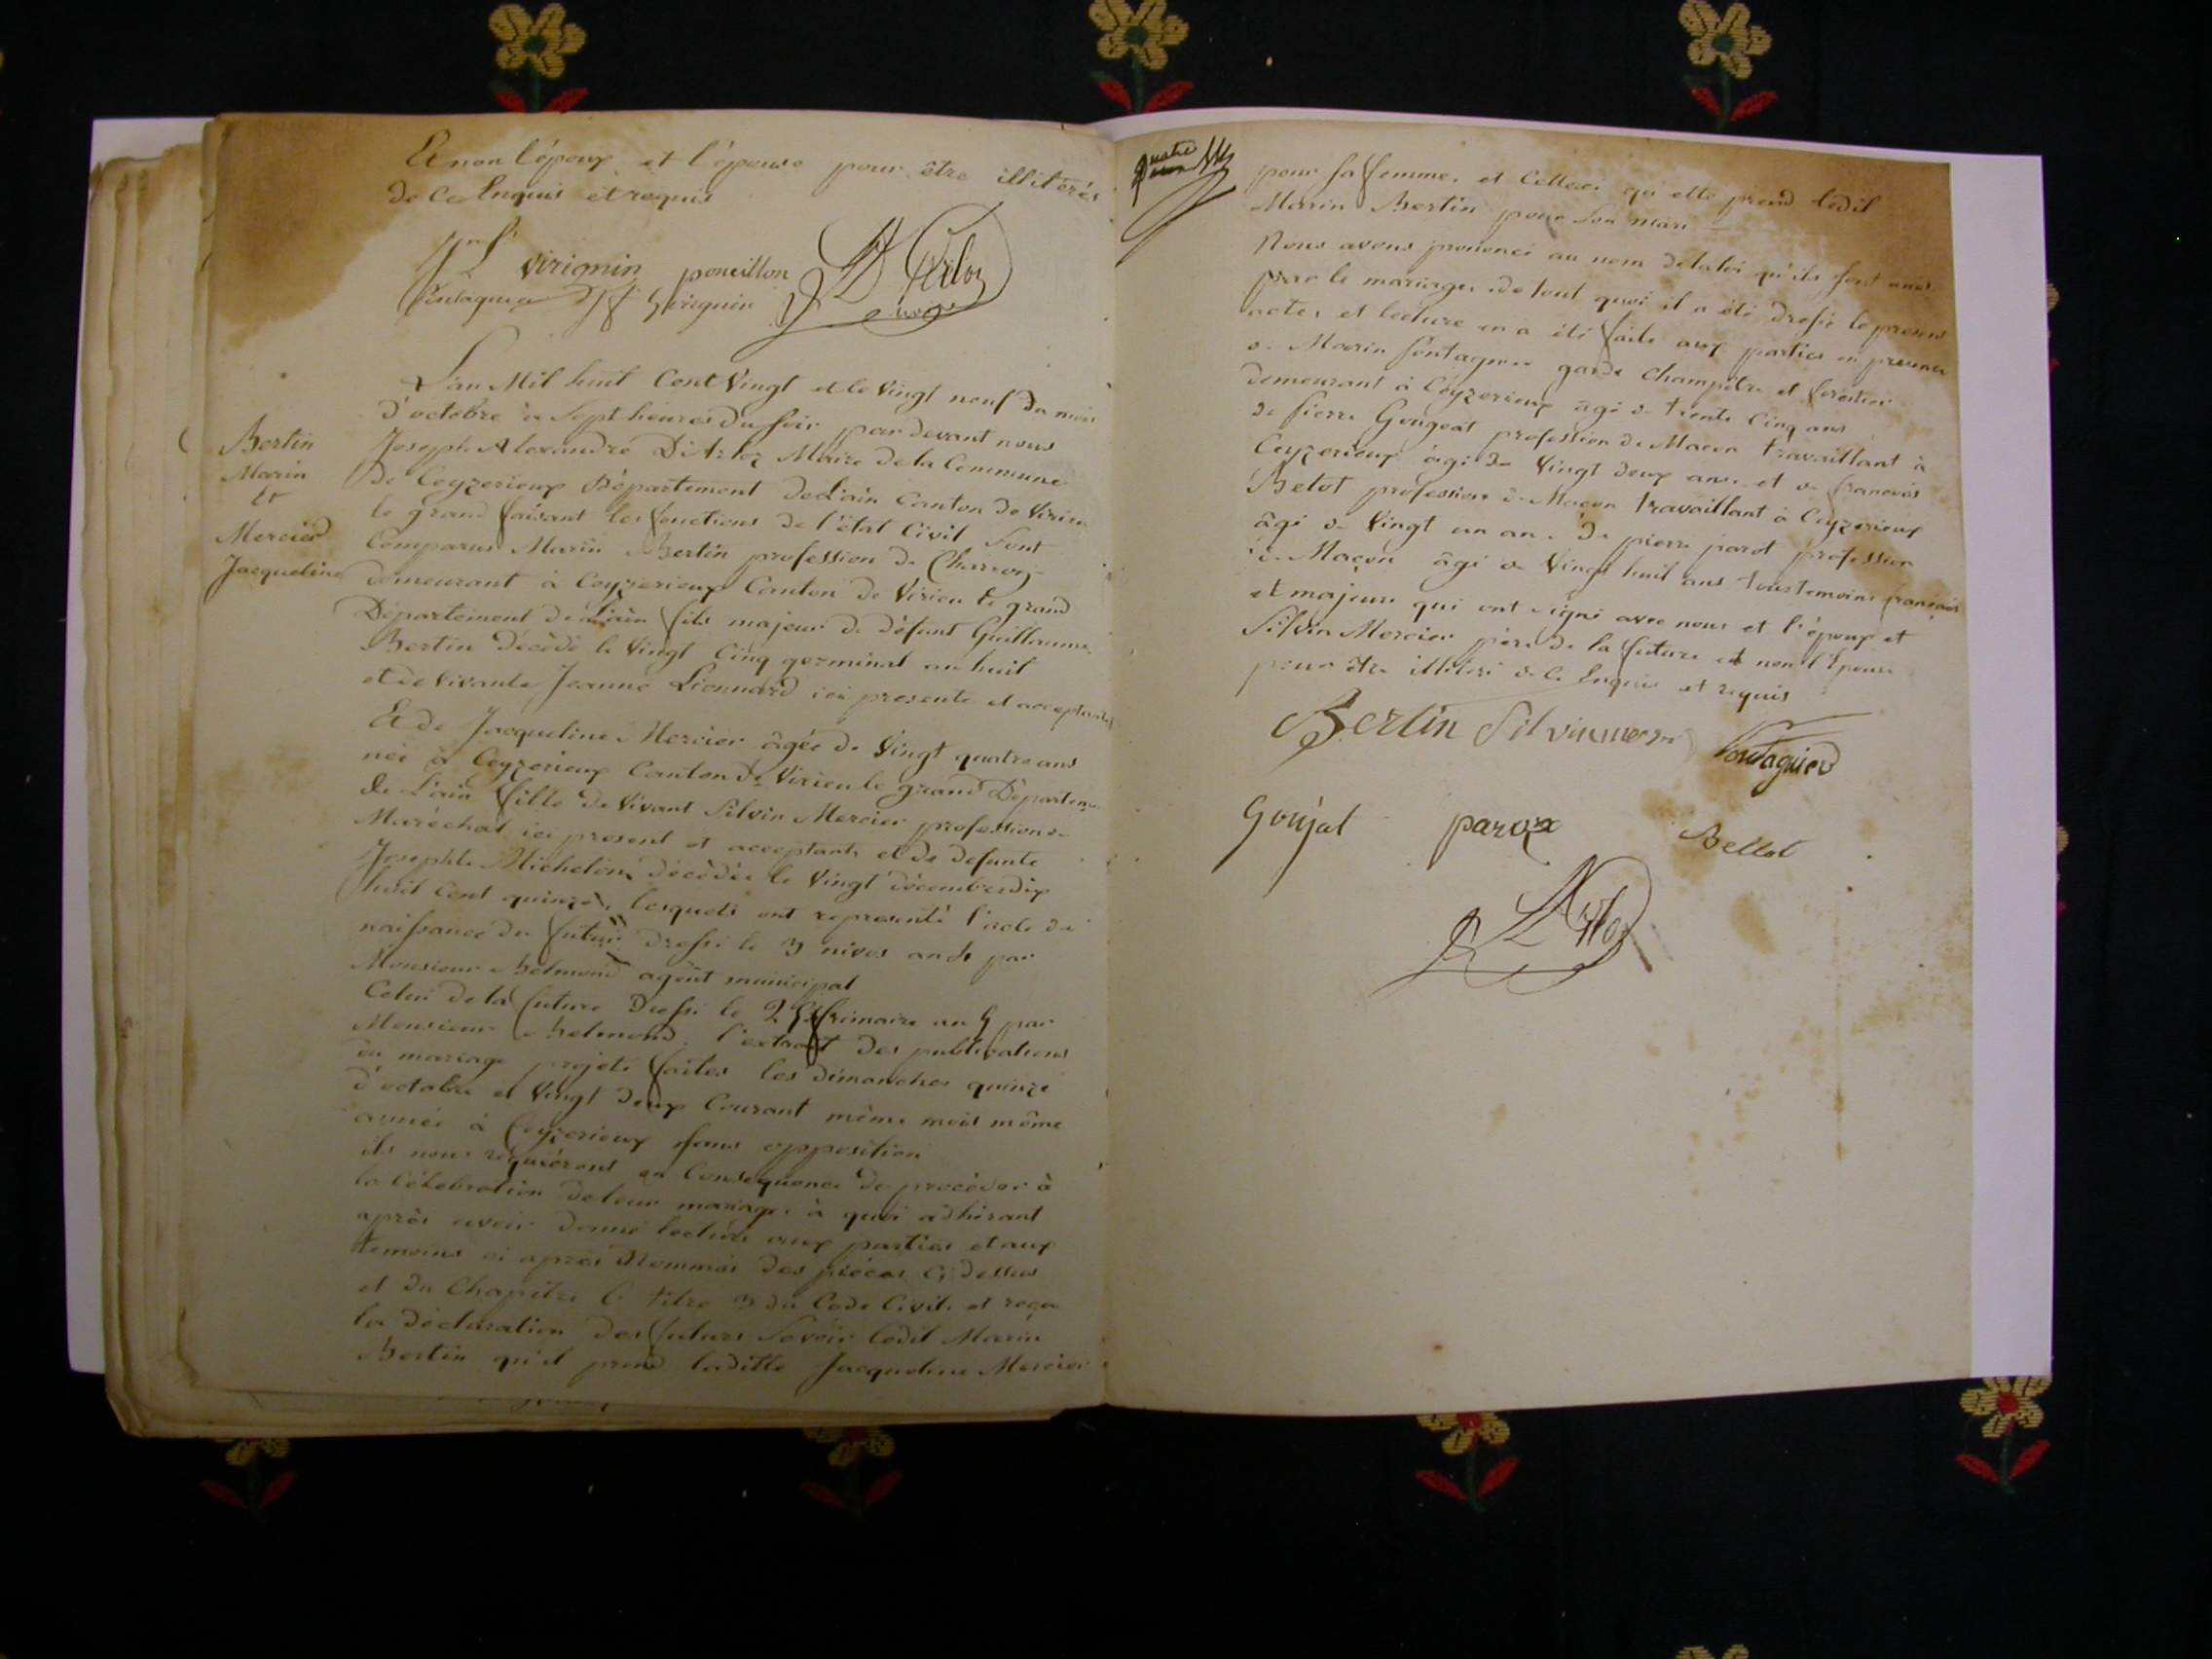 Et non l'époux et l'épouse pour être illitérés
de ce Enquis et requis
virignin poncillon
L'an Mil huit Cent Vingt et le Vingt neuf du mois
d'octobre à Sept heures du soir par devant nous
Joseph Alexandre D'Arloz Maire de la Commune
De Ceyzerieux Département de L'ain Canton de Virieu
le grand faisant les fonctions de l'état Civil Sont
Comparus Marin Bertin profession de Charron
demeurant à Ceyzerieux Canton de Virieu le grand
Département de L'ain fils majeur de défunt Guillaume
Bertin décédé le Vingt Cinq germinal an huit
et de Vivante Jeanne Lionnard ici presente et acceptante
Bertin
Marin
Et
Mercier
Jacqueline
Et de Jacqueline Mercier âgée de Vingt quatre ans
née à Ceyzerieux Canton de Virieu le grand Departem
de L'ain fille de Vivant Silvin Mercier profession de
Maréchal ici present et acceptant et de defunte
Josephte Michelon décédée le Vingt décembre dix
huit Cent quinze, lesquels ont representé l'acte de
naissance du futur dressé le 3 nivos an par
Monsieur Belmond agent municipal
Celui de la future Dressé le frimaire an par
Monsieur Belmond. l'extrait des publications
du mariage projeté faites les dimanches quinze
d'octobre et Vingt deux Courant même mois même
année à Ceyzerieux sans opposition
ils nous requièrent en Consequence de procéder à
la Célebration de leur mariage à quoi adhérant
après avoir donné lecture aux parties et aux
temoins ci après Nommés des pièces Ci dessus
et du Chapitre 6 titre 3 du Code Civil et reçu
la déclaration des futurs Savoir ledit Marin
Bertin qu'il prend laditte Jacqueline Mercier
quatre
pour sa femme, et Celle-ci qu'elle prend ledit
Marin Bertin pour Son mari
Nous avons prononcé au nom de la loi qu'ils sont unis
par le mariage, de tout quoi il a été dressé le present
acte, et lecture en a été faite aux parties en presence
de Marin fontagnier garde Champêtre et forestier
demeurant à Ceyzerieux agé de trente Cinq ans
de Pierre Gougeat profession de Macon travaillant à
Ceyzerieux âgé de Vingt deux ans. et de francois
Belot profession de Maçon travaillant à Ceyzerieux
âgé de Vingt un an. De pierre parot profession
de Maçon âgé de Vingt huit ans tous temoins français
et majeurs qui ont signé avec nous et l'époux et
Silvin Mercier père de la future et non l'Epouse
pour être illitéré de Ce Enquis et requis
Bertin Silvin fontagnier
Goujat parox Bellot